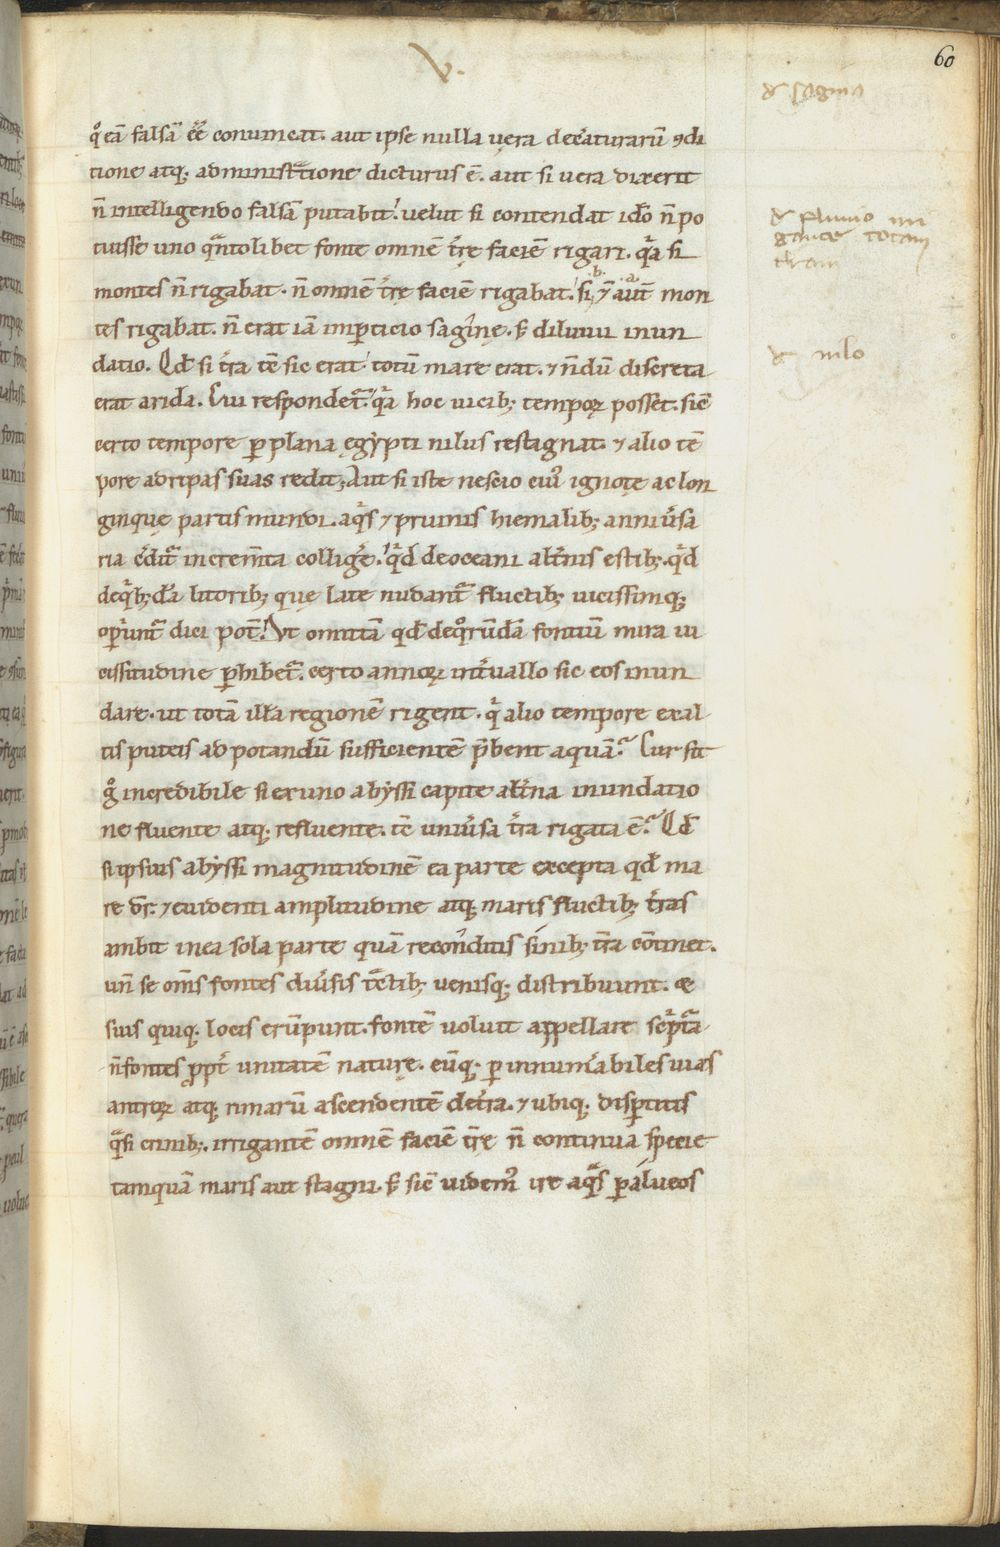 V.
60
& sagina
q̊ eã falsã ẽẽ conuincat. aut ipse nulla uera de creaturarũ ꝯdi
tione atq; administ̃tione dicturus ẽ. aut si uera dixerit
ñ intelligendo falsã putabit. uelut si contendat idõ ñ po
tuisse uno q̃ntolibet fonte omnẽ t̃rę faciẽ rigari. q̃a si
montes ñ rigabat. ñ omnẽ t̃rę faciẽ rigabat. si .b. ⁊ .a. aut̃ mon
tes rigabat. ñ erat iã imp̱ticio saginę. s; diluuii inun
datio. Qd̃ si t̃ra tc̃ sic erat totũ mare erat. ⁊ ñdũ discreta
erat arida. Cui respondet̃ q̃a hoc uicib; tempoꝝ posset. sic̃
certo tempore p̱ plana ęgypti nilus restagnat. ⁊ alio tẽ
pore ad ripas suas redit; Aut si iste nescio cui᷒ ignotę ac lon
ginquę partis mundi. aq̃s ⁊ pruinis hiemalib; anniũsa
ria c̃dit̃ increm̃ta collig̃e. q̃d de oceani alt̃nis estib;. q̃d
de q̃b;dã litorib; quę late nudant̃ fluctib; uicissimq;
op̱iunt̃ dici pot̃. Vt omittã qd̃ de q̊rũdã fontiũ mira ui
cissitudine p̱hibet̃. certo annoꝝ int̃uallo sic eos inun
dare. ut totã illã regionẽ rigent. q̃ alio tempore ex al
tis puteis ad potandũ sufficientẽ p̃bent aquã. Cur sit
g̊ incredibile si ex uno abyssi capite alt̃na inundatio
ne fluente atq; refluente. tc̃ uniũsa t̃ra rigata ẽ. Qd̃
si ipsius abyssi magnitudinẽ ea parte excepta qd̃ ma
re dr̃. ⁊ euidenti amplitudine atq; maris fluctib; t̃ras
ambit in ea sola parte quã reconditis sinib; t̃ra cõtinet.
uñ se om̃s fontes diũsis t̃ctib; uenisq; distribuunt. &
suis quiq; locis erũpunt. fontẽ uoluit appellare sc̃pt̃a
ñ fontes ꝓpt̃ unitatẽ naturę. eũq; p̱ innum̃abiles uias
antroꝝ atq; rimarũ ascendentẽ de t̃ra. ⁊ ubiq; disp̱titis
q̃si crinib;. irrigantẽ omnẽ faciẽ t̃rę ñ continua specie
tamquã maris aut stagni. s; sic̃ uidem᷒ ire aq̃s p̱ alueos
& pluuio irri
gante totam
t̃ram
& nilo